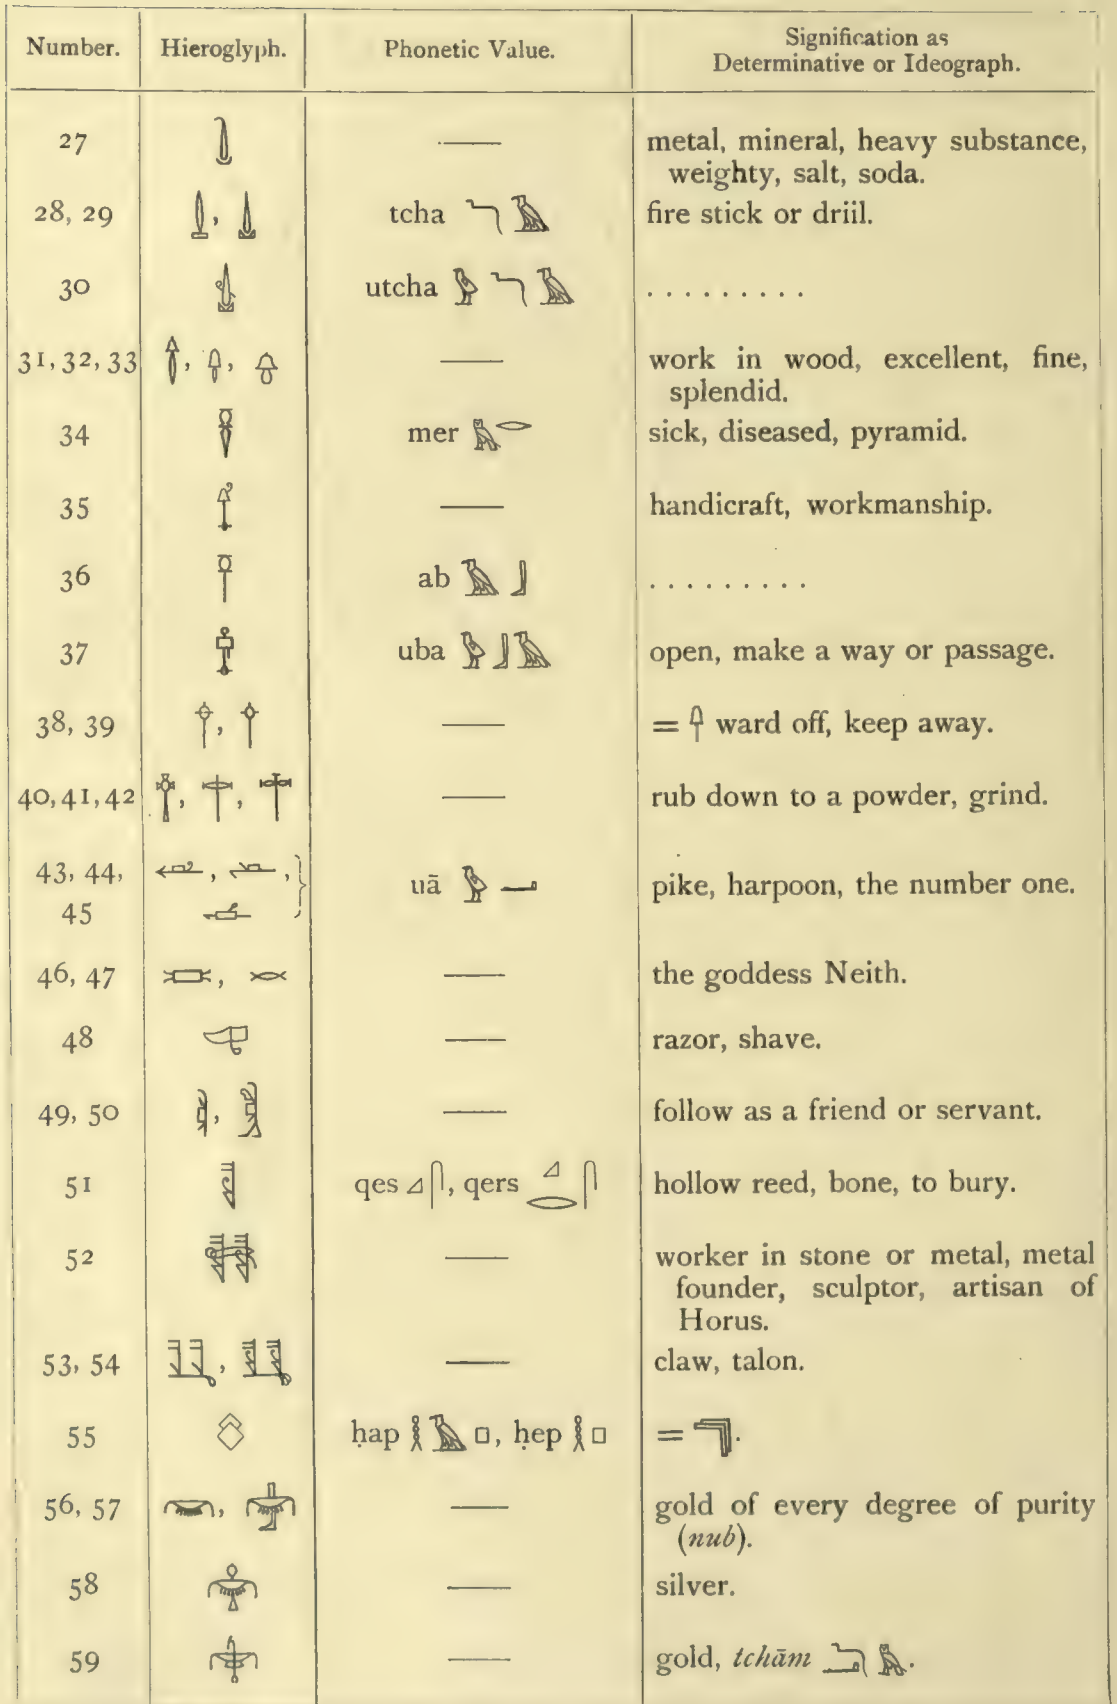 Number. Hieroglyph. Phonetic Value. Signification as
Determinative or Ideograph.
27 — metal, mineral, heavy substance,
weighty, salt, soda.
28, 29 tcha 𓆓𓄿 fire stick or driil.
30 utcha 𓅱𓆓𓄿 . . . . . . . . .
31, 32, 33 — work in wood, excellent, fine,
splendid.
34 mer 𓅓𓂋 sick, diseased, pyramid.
35 — handicraft, workmanship.
36 ab 𓄿𓃀 . . . . . . . . .
37 uba 𓅱𓃀𓄿 open, make a way or passage.
38, 39 — = ward off, keep away.
40, 41, 42 — rub down to a powder, grind.
43, 44,
45 uā 𓅱𓂝 pike, harpoon, the number one.
46, 47 — the goddess Neith.
48 — razor, shave.
49, 50 — follow as a friend or servant.
51 qes 𓈎𓋴, qers 𓈎𓂋𓋴 hollow reed, bone, to bury.
52 — worker in stone or metal, metal
founder, sculptor, artisan of
Horus.
53, 54 — claw, talon.
55 ḥap 𓎛𓄿𓊪, ḥep 𓎛𓊪 = .
56, 57 𓋞, 𓋟 — gold of every degree of purity
(nub).
58 𓋠 — silver.
59 𓋡 — gold, tchām 𓆓𓂝𓅓.